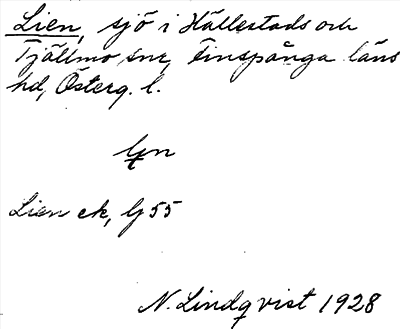 Lien, sjö i Hällestads och
Tjällmo snr, Finspånga läns
hd, Österg. l.
Lien ek, G 55
N. Lindqvist 1928